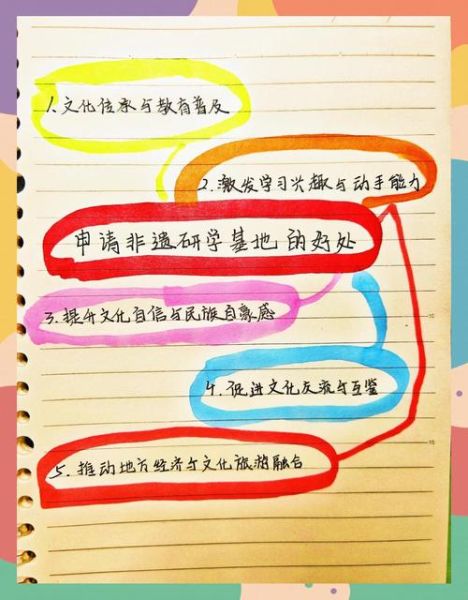 1.文化传承与教育普及
2.激发学习兴趣与动手能力
申请非遗研学基地的好处
3.提升文化自信与民族自豪感
4.促进文化交流与互鉴
5.推动地方经济与文化旅游融合